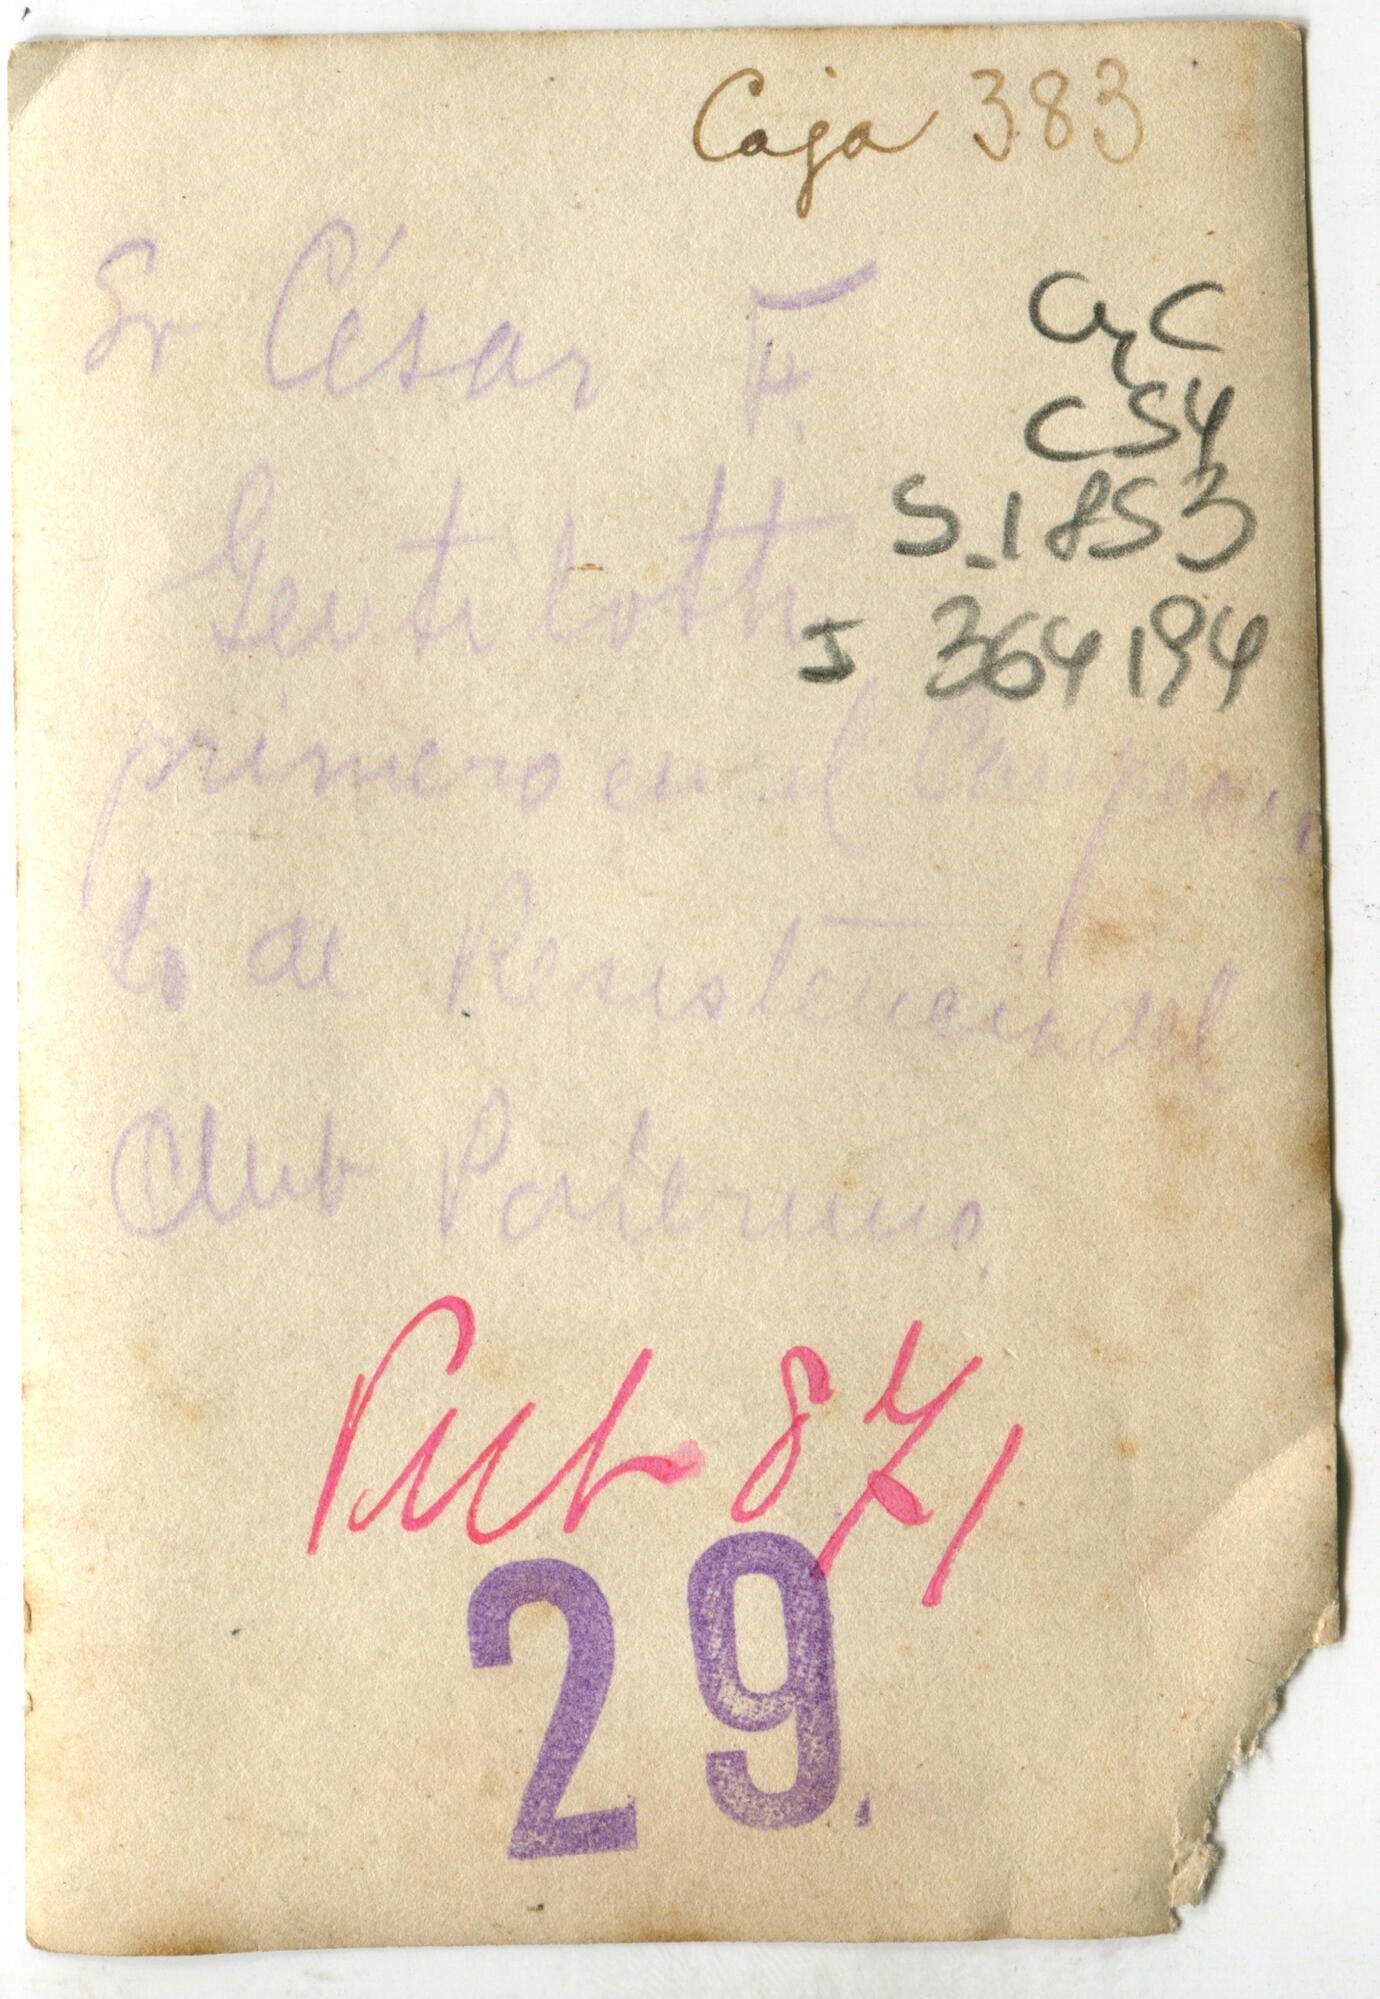 Caja 383
Sr César F.
AyC
CS4
S_1853
Gentilotti
J 364194
primero en el Campeona
to de Resistencia del
Club Palermo.
Pub 871
29